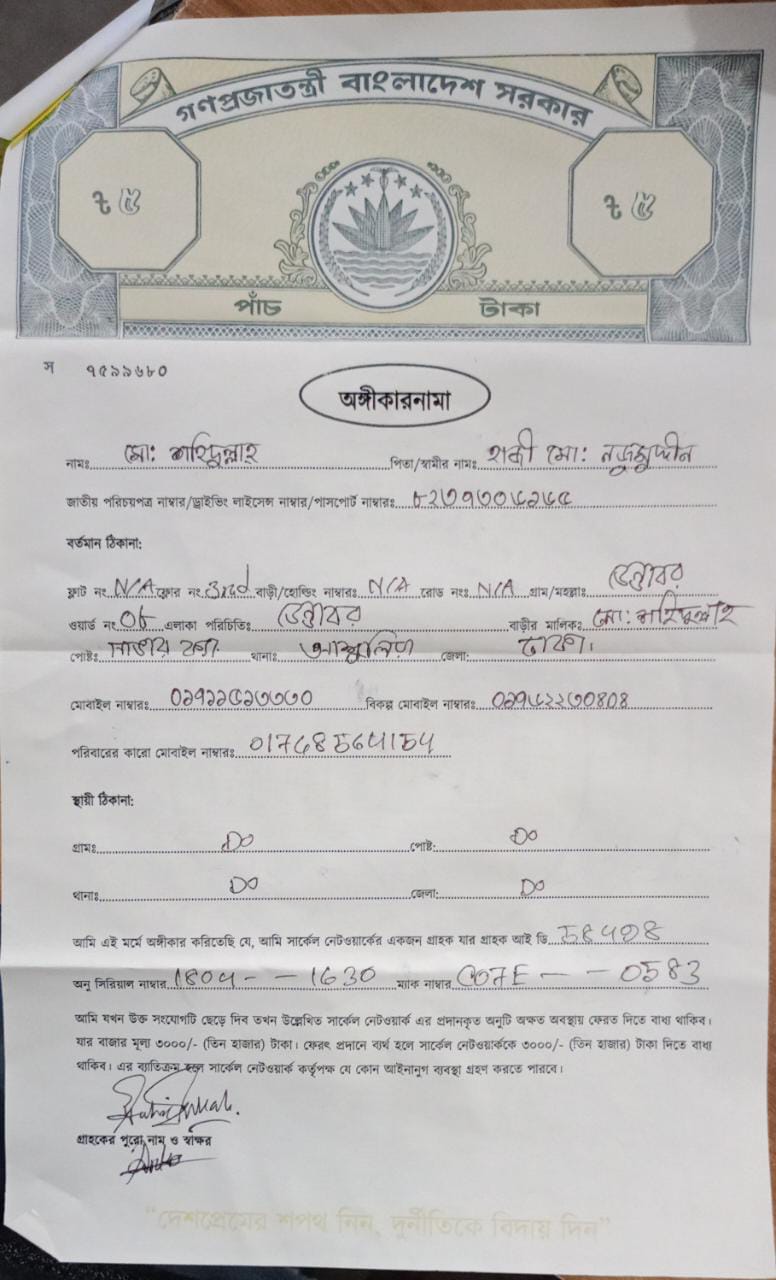 গণপ্রজাতন্ত্রী বাংলাদেশ সরকার
৳ ৫
৳ ৫
পাঁচ টাকা
স ৭৫৯৯৬৮০
অঙ্গীকারনামা
নামঃ মো: শহিদুল্লাহ্ পিতা/স্বামীর নামঃ হাজী মো:
জাতীয় পরিচয়পত্র নাম্বার/ড্রাইভিং লাইসেন্স নাম্বার/পাসপোর্ট নাম্বারঃ
বর্তমান ঠিকানা:
ফ্লাট নং N/A ফ্লোর নং 3red বাড়ী/হোল্ডিং নাম্বারঃ N/A রোড নংঃ N/A গ্রাম/মহল্লাঃ ডেন্ডাবর
ওয়ার্ড নং এলাকা পরিচিতিঃ ডেন্ডাবর বাড়ীর মালিকঃ মো: শহিদুল্লাহ্
পোষ্টঃ থানাঃ আশুলিয়া জেলা: ঢাকা।
মোবাইল নাম্বারঃ বিকল্প মোবাইল নাম্বারঃ
পরিবারের কারো মোবাইল নাম্বারঃ
স্থায়ী ঠিকানা:
গ্রামঃ DO পোষ্ট: DO
থানাঃ DO জেলা: DO
আমি এই মর্মে অঙ্গীকার করিতেছি যে, আমি সার্কেল নেটওয়ার্কের একজন গ্রাহক যার গ্রাহক আই ডি
অনু সিরিয়াল নাম্বার 1804 - - 1630 ম্যাক নাম্বার C07E - - 0583
আমি যখন উক্ত সংযোগটি ছেড়ে দিব তখন উল্লেখিত সার্কেল নেটওয়ার্ক এর প্রদানকৃত অনুটি অক্ষত অবস্থায় ফেরত দিতে বাধ্য থাকিব।
যার বাজার মূল্য ৩০০০/- (তিন হাজার) টাকা। ফেরৎ প্রদানে ব্যর্থ হলে সার্কেল নেটওয়ার্ককে ৩০০০/- (তিন হাজার) টাকা দিতে বাধ্য
থাকিবে। এর ব্যতিক্রম হলে সার্কেল নেটওয়ার্ক কর্তৃপক্ষ যে কোন আইনানুগ ব্যবস্থা গ্রহণ করতে পারবে।
গ্রাহকের পুরো নাম ও স্বাক্ষর
“দেশপ্রেমের শপথ নিন, দুর্নীতিকে বিদায় দিন”